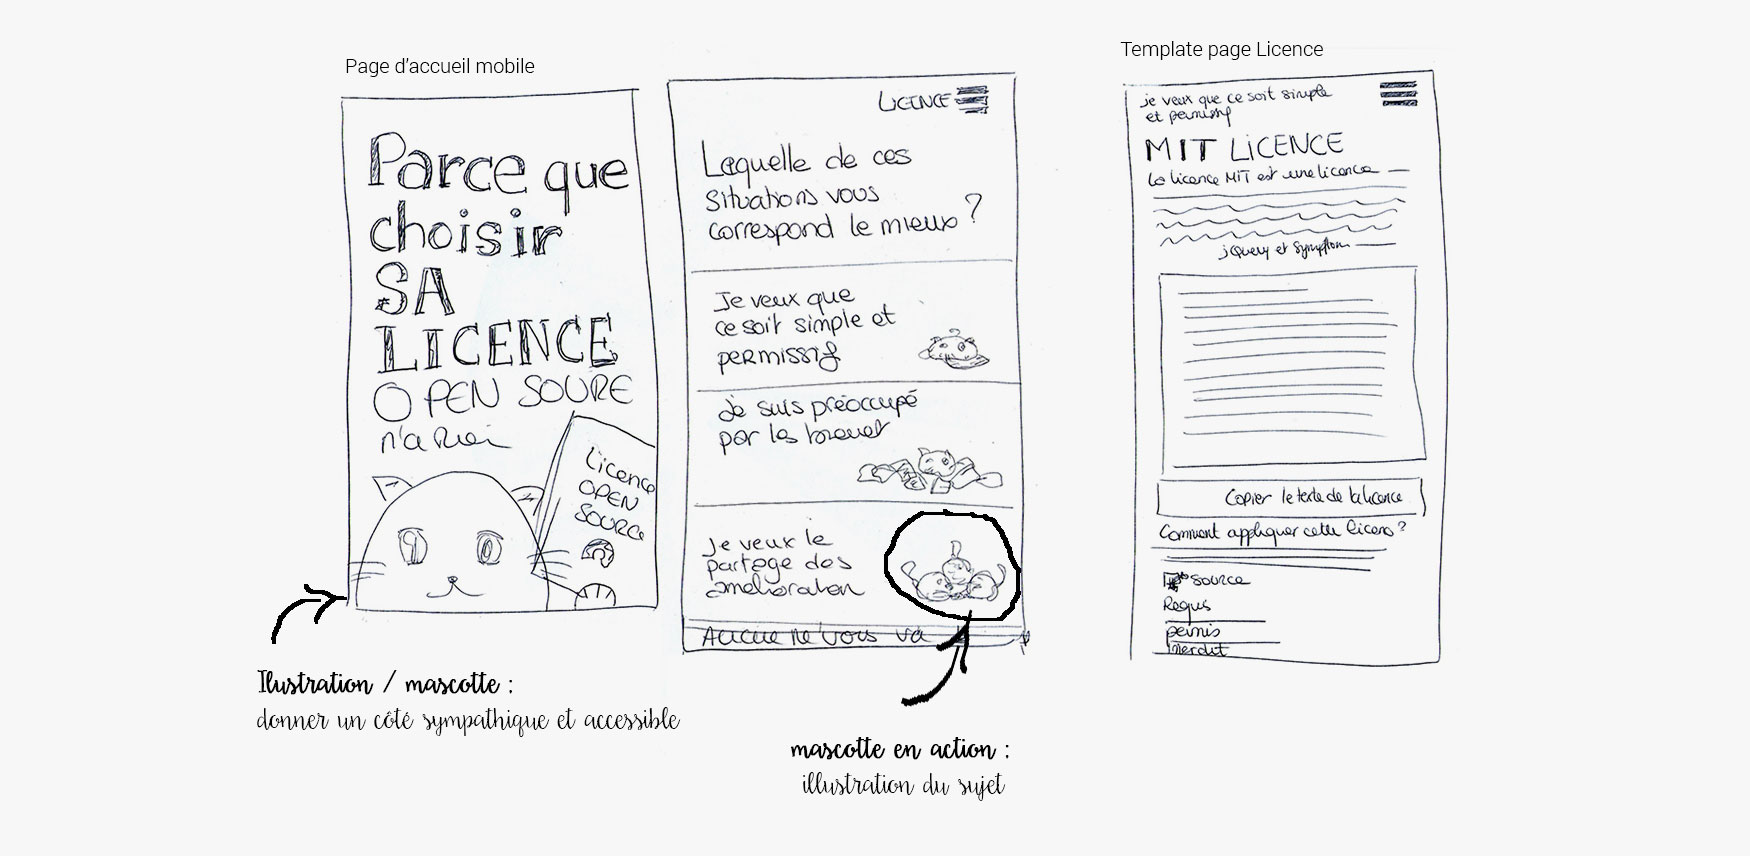 Page d'accueil mobile
Parce que
choisir
SA
LICENCE
OPEN SOURE
n'a
Licence
OPEN
SOURCE
Ilustration / mascotte :
donner un côté sympathique et accessible
LICENCE
Laquelle de ces
situations vous
correspond le mieux ?
Je veux que
ce soit simple et
permissif
Je suis préoccupé
par les brevet
Je veux le
partage des
amélioration
Aucune ne vous va
mascotte en action :
illustration du sujet
Template page Licence
je veux que ce soit simple
et permissif
MIT LICENCE
La licence MIT est une licence
jQuery et
Copier le texte de la licence
Comment appliquer cette licence ?
source
Requis
permis
interdit